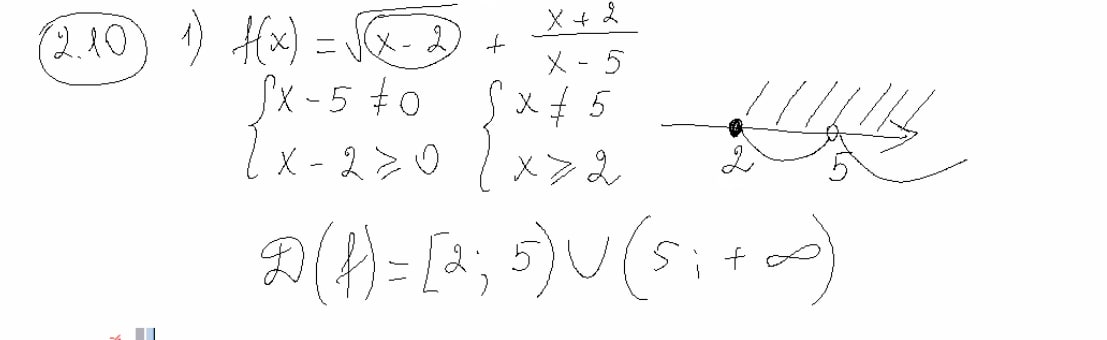 2.10 1) f(x) = √(x - 2) + (x + 2)/(x - 5)
{x - 5 ≠ 0 {x ≠ 5
{x - 2 ⩾ 0 {x ⩾ 2
2 5
D(f) = [2; 5) ∪ (5; +∞)